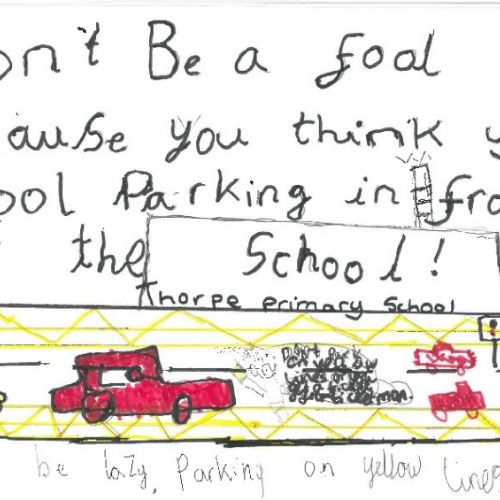 on't Be a fool
ause you think y
ool Parking in fro
the School!
Thorpe Primary School
be lazy, Parking on yellow lines